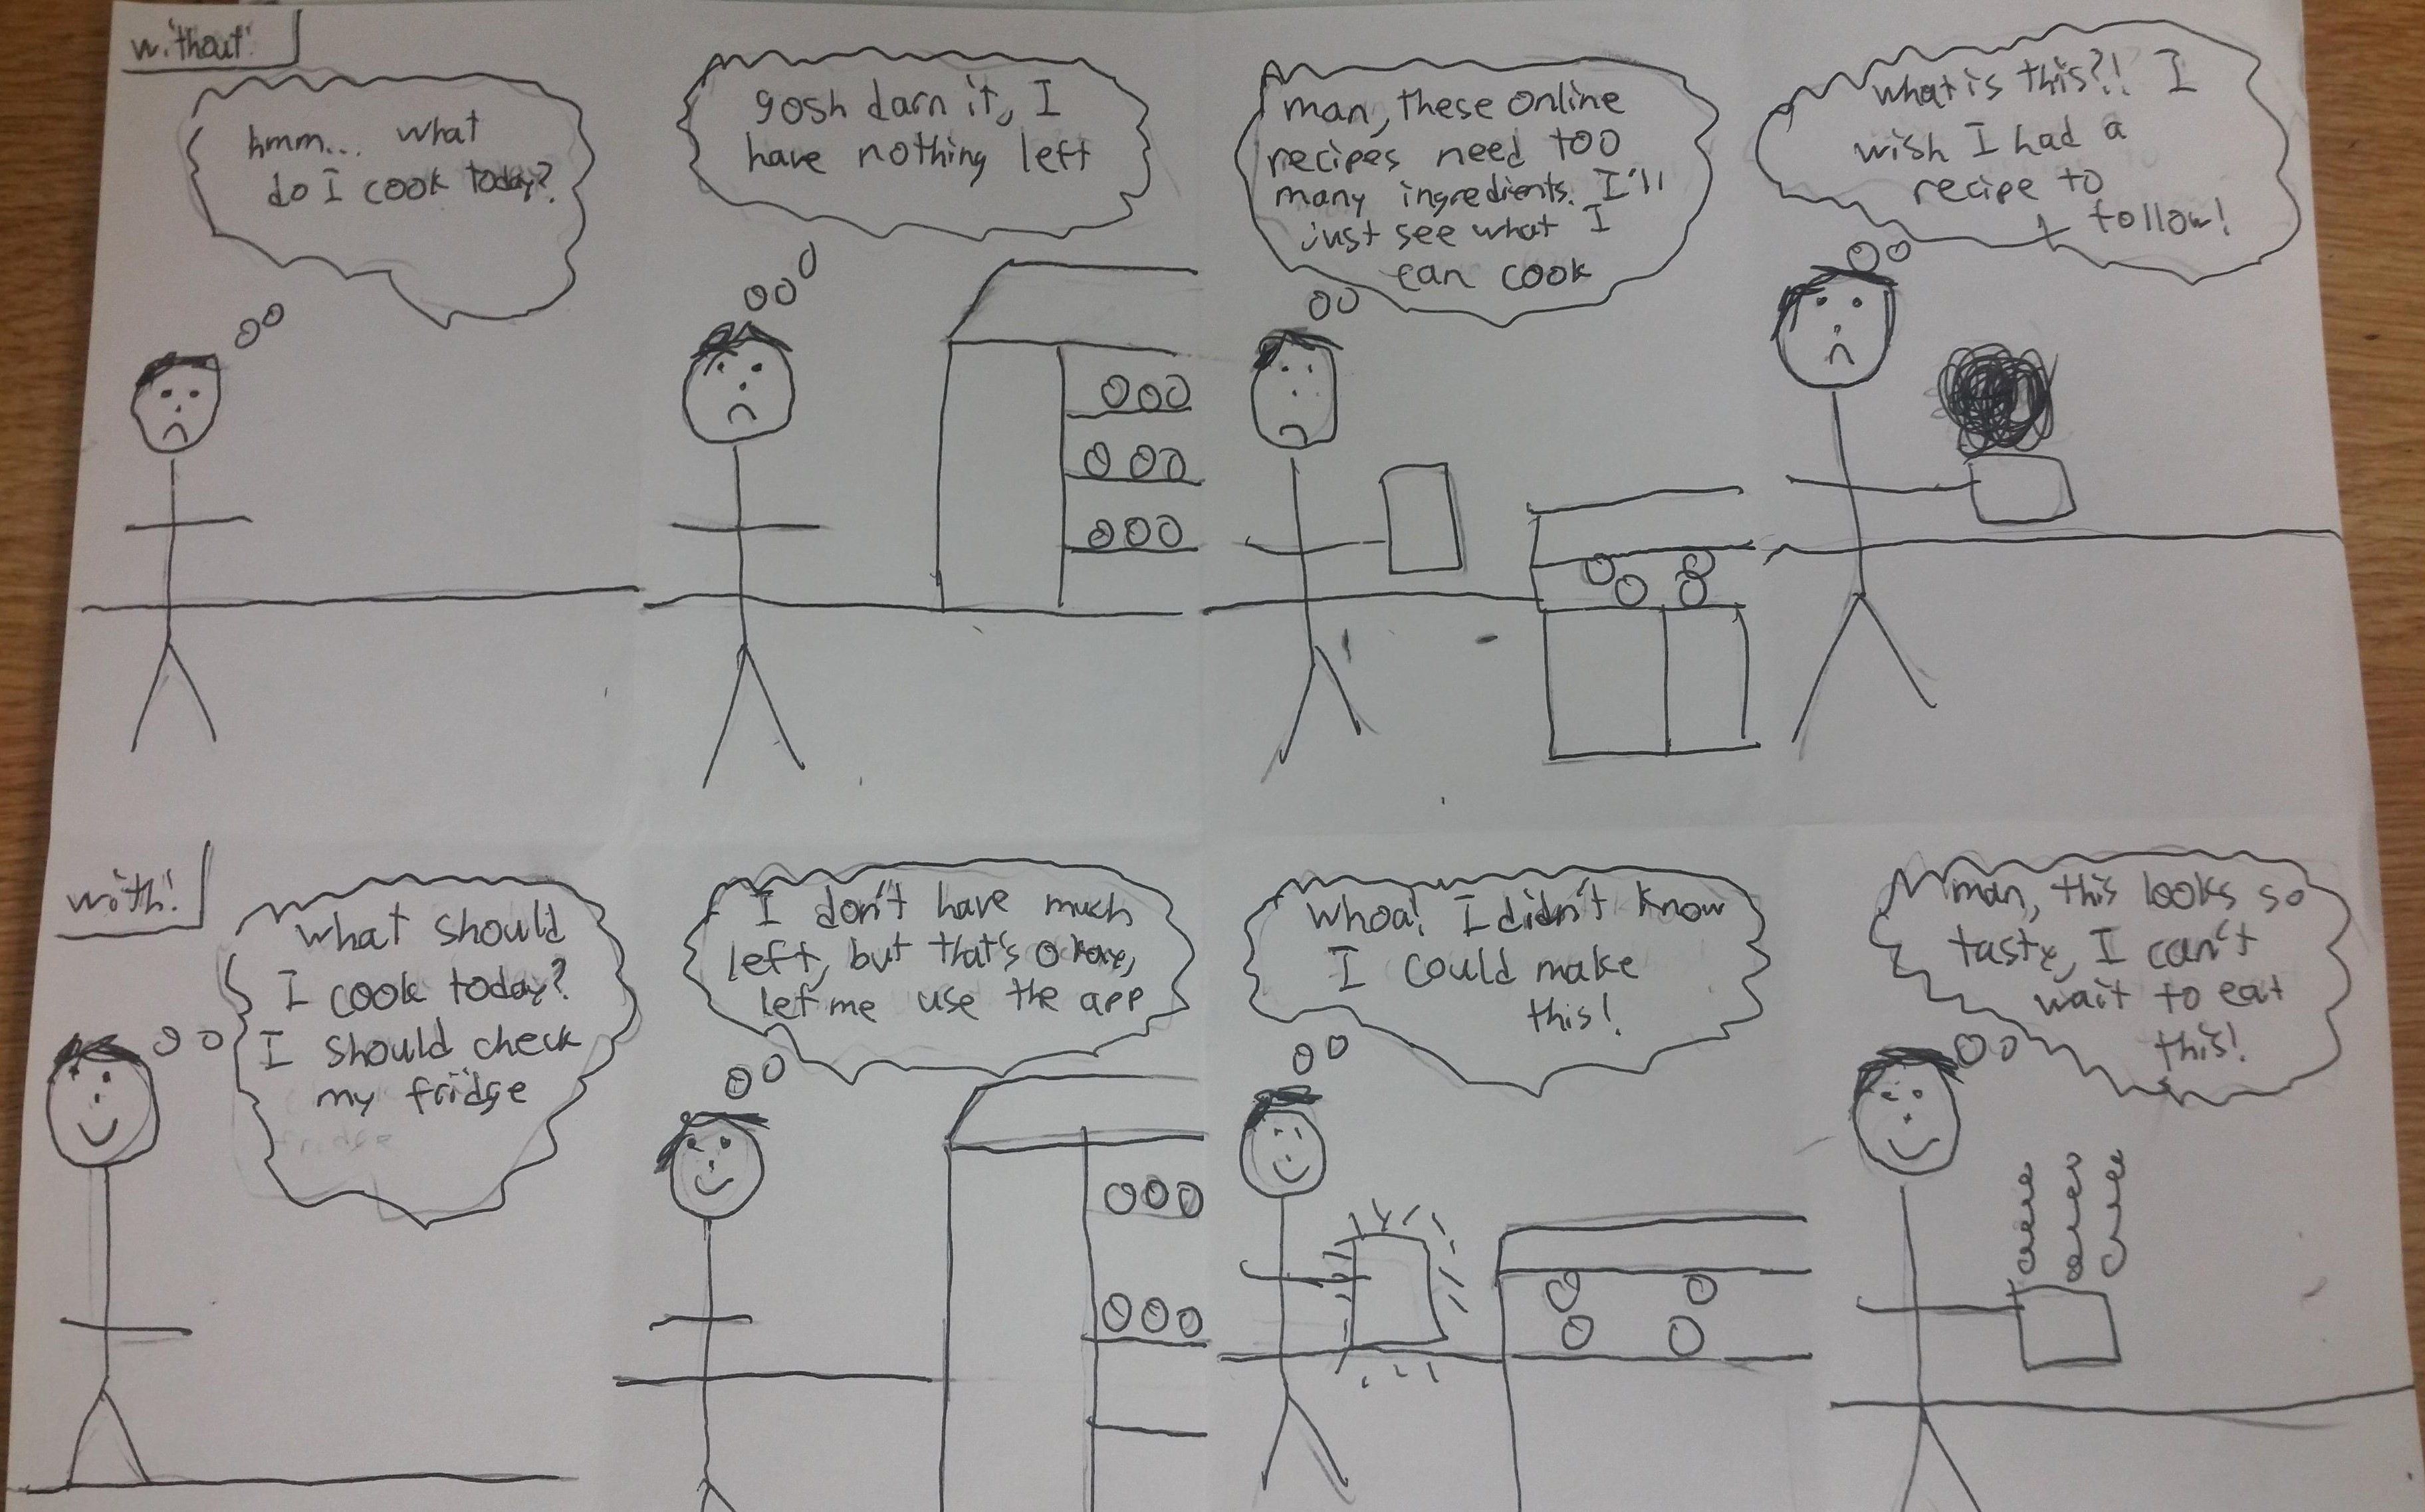 without
hmm... what
do I cook today?
gosh darn it, I
have nothing left
man, these online
recipes need too
many ingredients. I'll
just see what I
can cook
what is this?! I
wish I had a
recipe to
follow!
with!
what should
I cook today?
I should check
my fridge
I don't have much
left, but that's okay,
let me use the app
whoa! I didn't know
I could make
this!
man, this looks so
tasty, I can't
wait to eat
this!